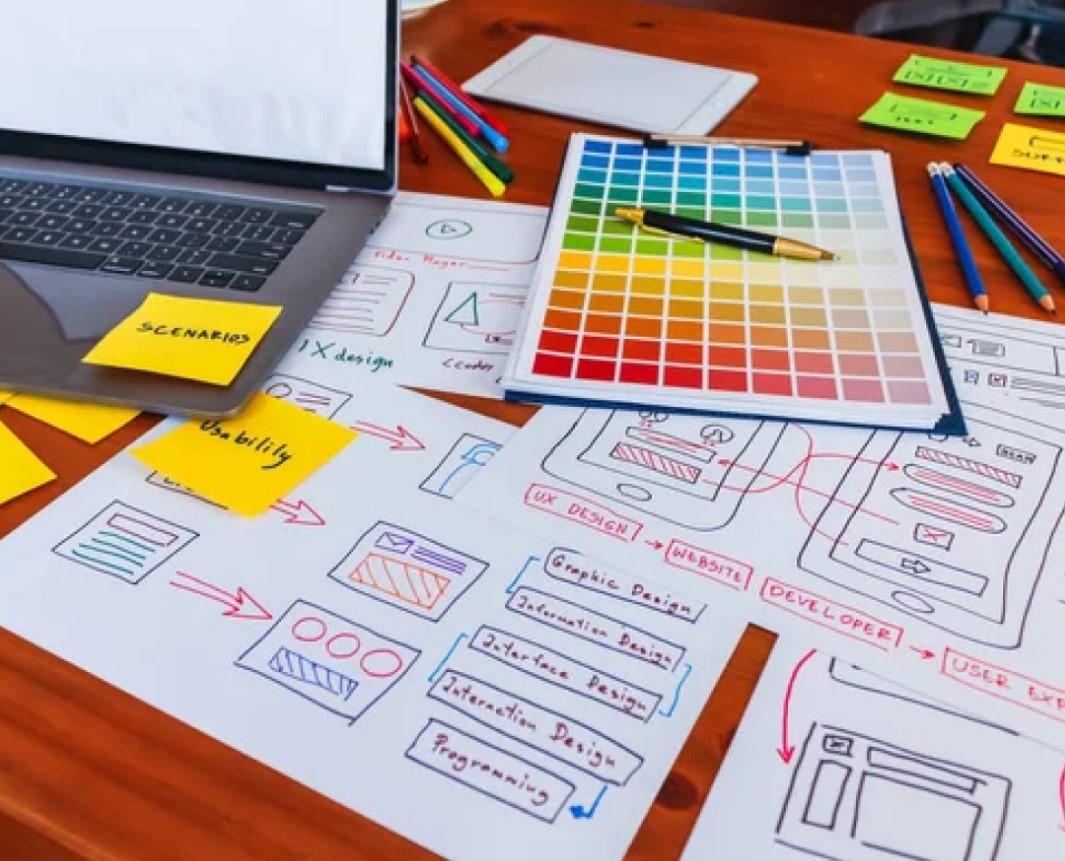 SCENARIOS
Usability
UX design
UX DESIGN
WEBSITE
DEVELOPER
USER EXP
Graphic Design
Information Design
Interface Design
Interaction Design
Programming